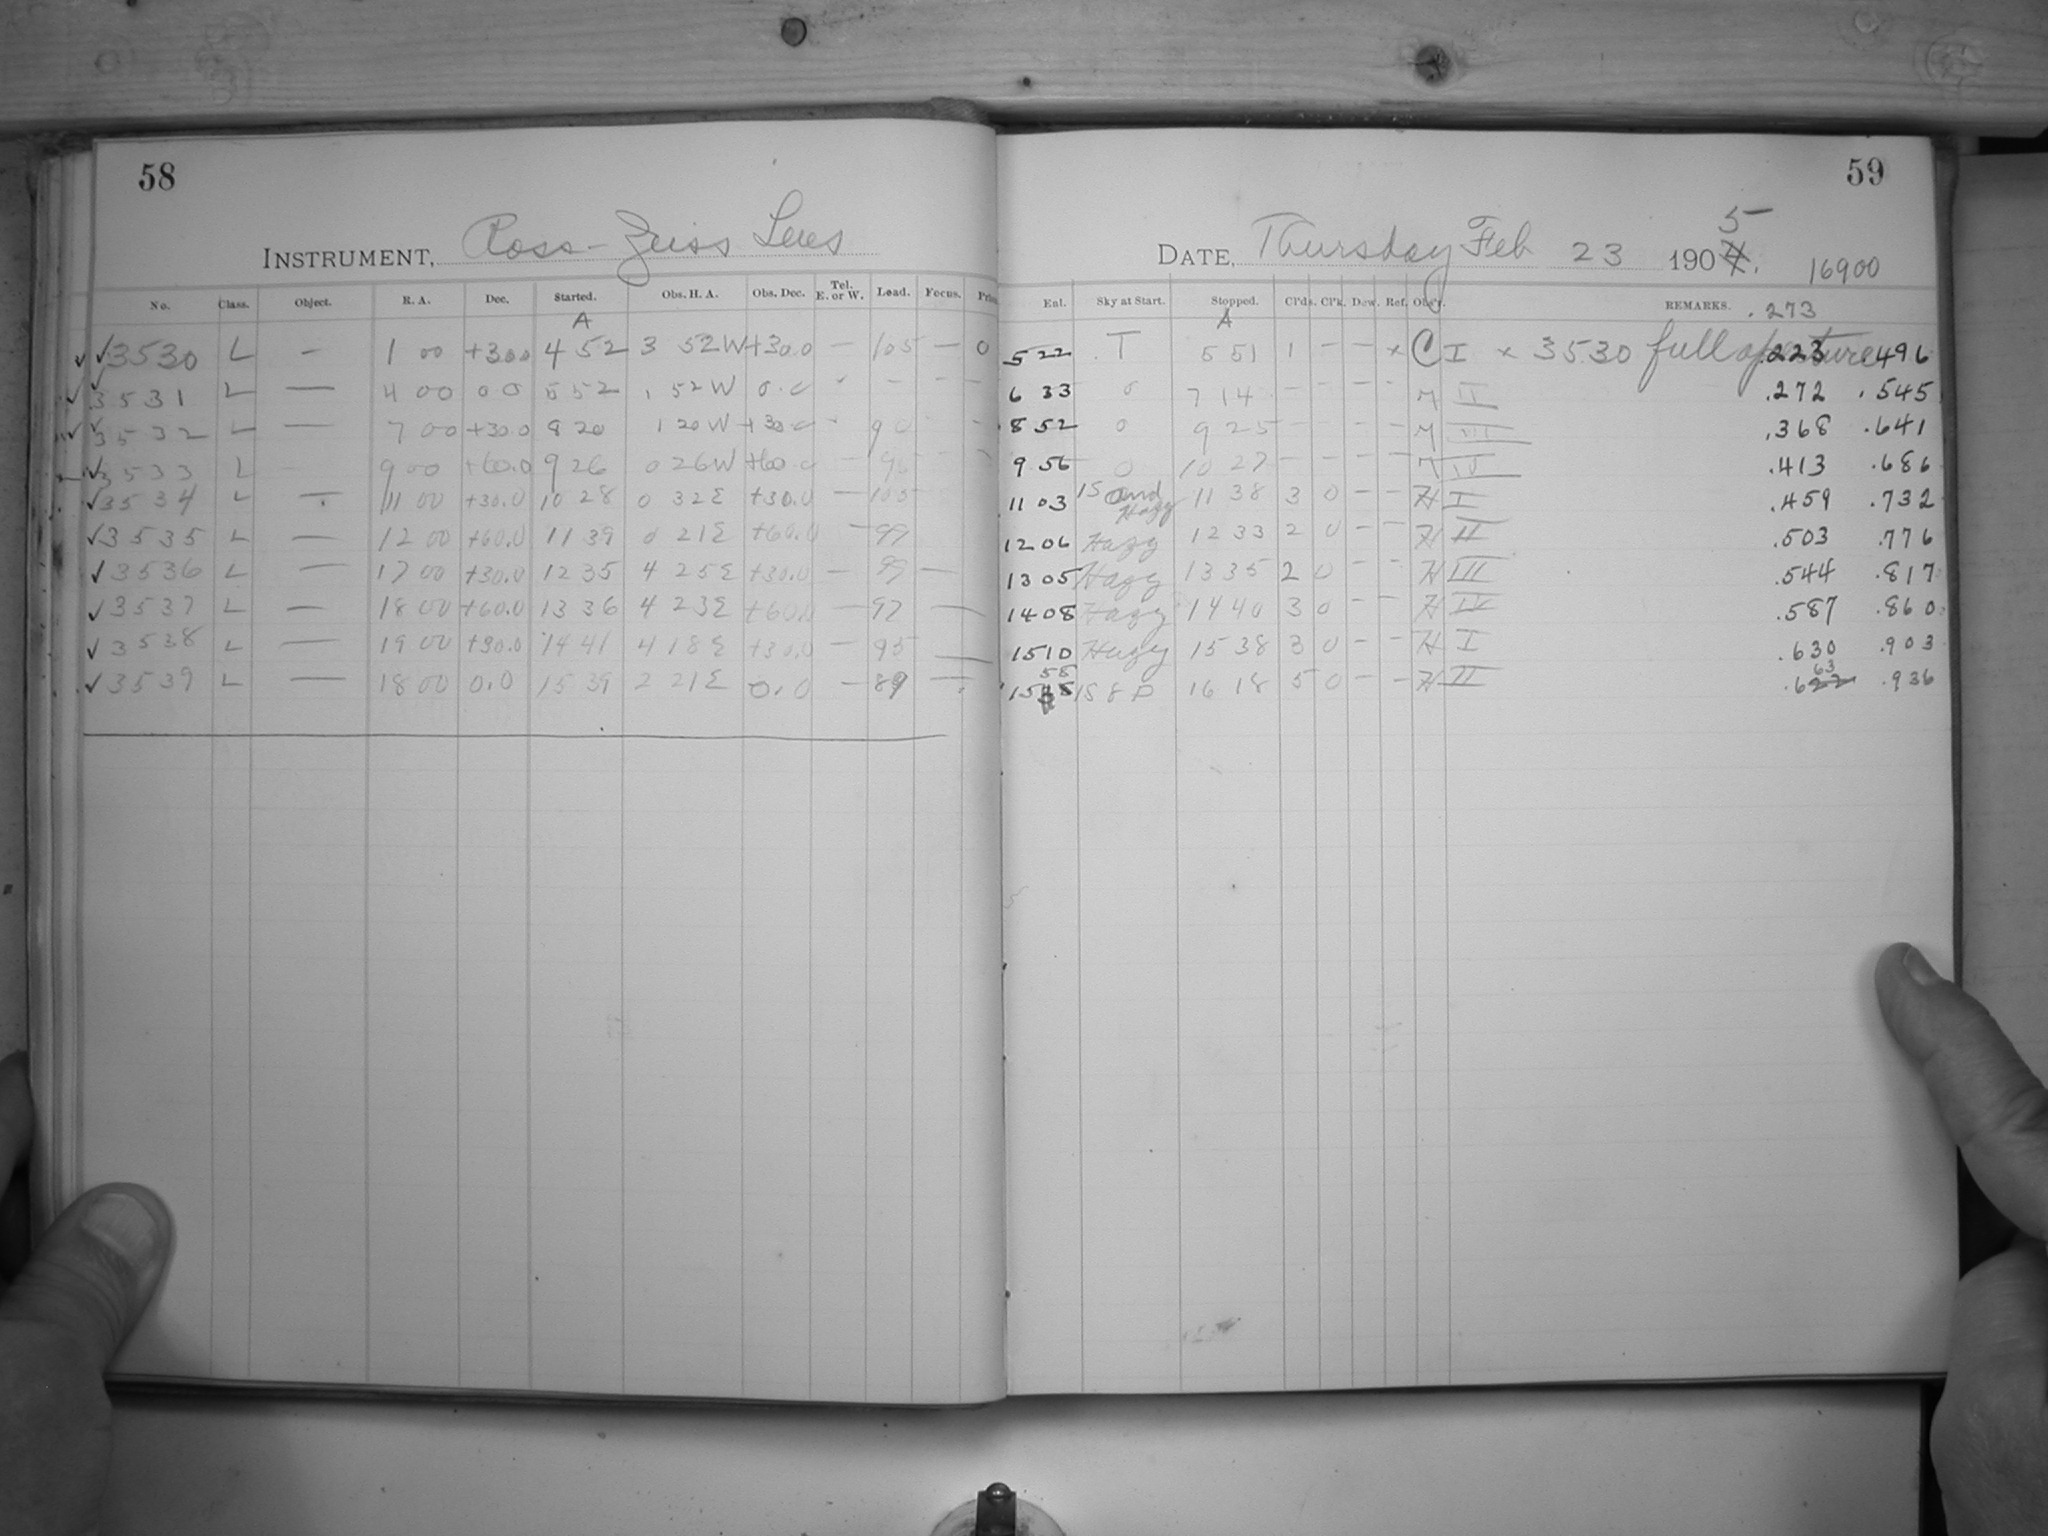 58
INSTRUMENT, Ross-Zeiss Lens
No. Class. Object. R. A. Dec. Started. Obs. H. A. Obs. Dec. Tel. E. or W. Load. Focus.
A
✓ ✓3530 L — 1 00 +30.0 4 52 3 52W +30.0 — 105 — 0
✓ ✓3531 L — 4 00 0 0 5 52 1 52W 0.0 - - - -
✓ ✓3532 L — 7 00 +30.0 8 20 1 20W +30.0 - 90
✓3533 L 9 00 +60.0 9 26 0 26W +60.0 — 95
✓3534 L — 11 00 +30.0 10 28 0 32E +30.0 — 105
✓3535 L — 12 00 +60.0 11 39 0 21E +60.0 — 99
✓3536 L — 17 00 +30.0 12 35 4 25E +30.0 — 99 —
✓3537 L — 18 00 +60.0 13 36 4 23E +60.0 — 97 —
✓3538 L — 19 00 +30.0 14 41 4 18E +30.0 — 95 —
✓3539 L — 18 00 0.0 15 39 2 21E 0.0 — 89 —
59
5
DATE, Thursday Feb 23 1904. 16900
Enl. Sky at Start. Stopped. Cl'ds. Cl'k. Dew. Ref. Obs'r. REMARKS. .273
A
5 22 T 5 51 1 — — x C I x 3530 full aperture .223 .496
6 33 0 7 14 - - - - M II .272 .545
8 52 0 9 25 - - - - M III .368 .641
9 56 0 10 27 - - - - M IV .413 .686
11 03 15 and Hazy 11 38 3 0 - - H I .459 .732
12 06 Hazy 12 33 2 0 - - H II .503 .776
13 05 Hazy 13 35 2 0 - - H III .544 .817
14 08 Hazy 14 40 3 0 - - H IV .587 .860
15 10 Hazy 15 38 3 0 - - H I .630 .903
58 63
15 15 8 P 16 18 5 0 - - H II .622 .936